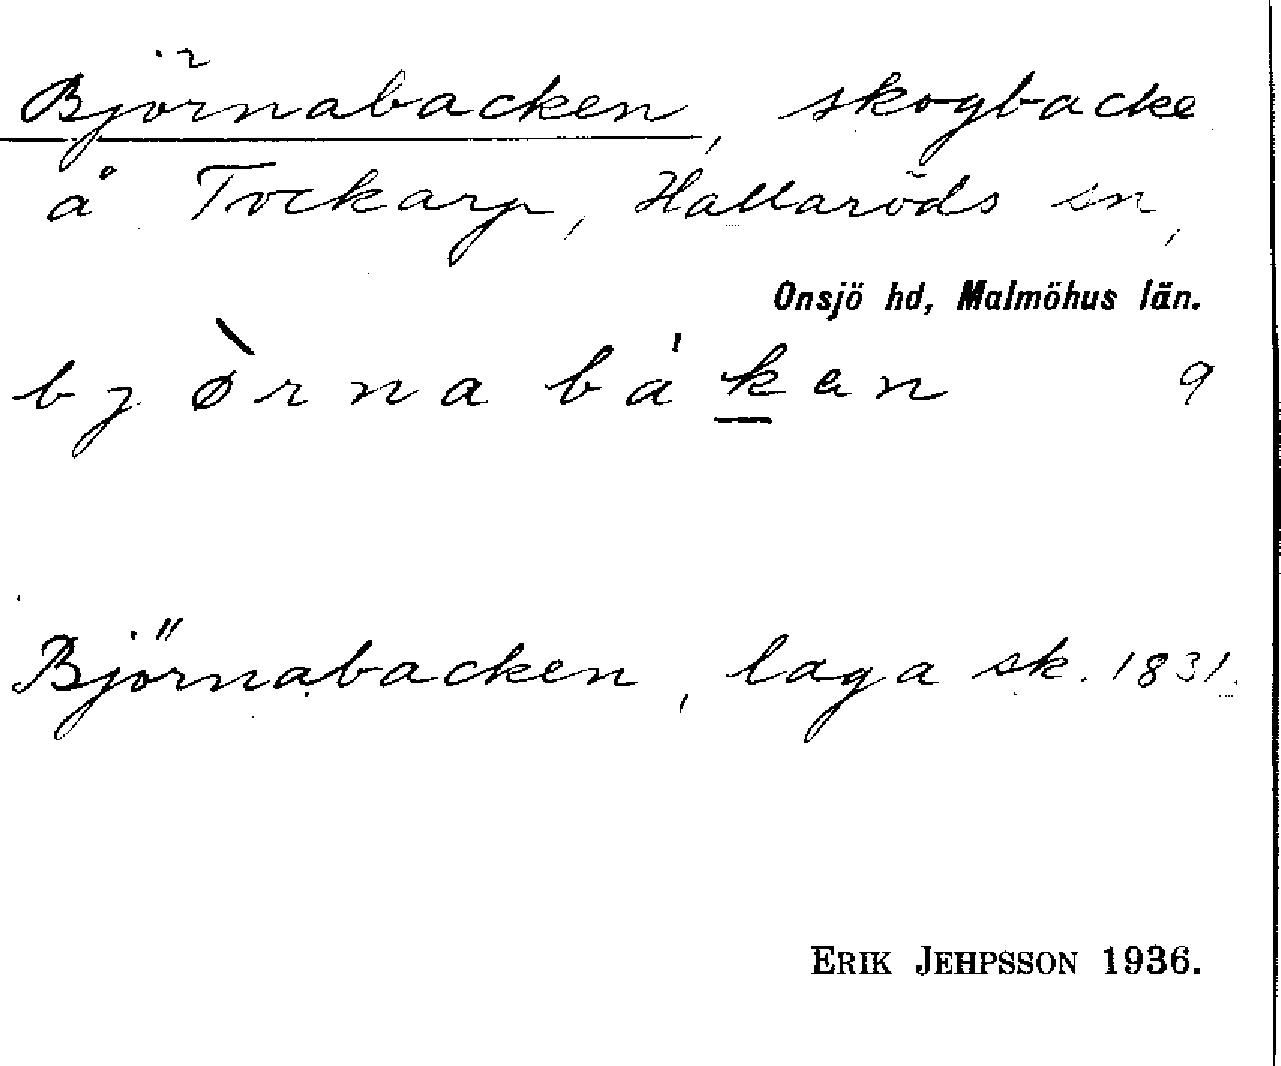 Björnabacken, skogbacke
å Tockarp, Hallaröds sn,
Onsjö hd, Malmöhus län.
bjø̀rnabákan 9
Björnabacken, laga sk. 1831.
ERIK JEHPSSON 1936.